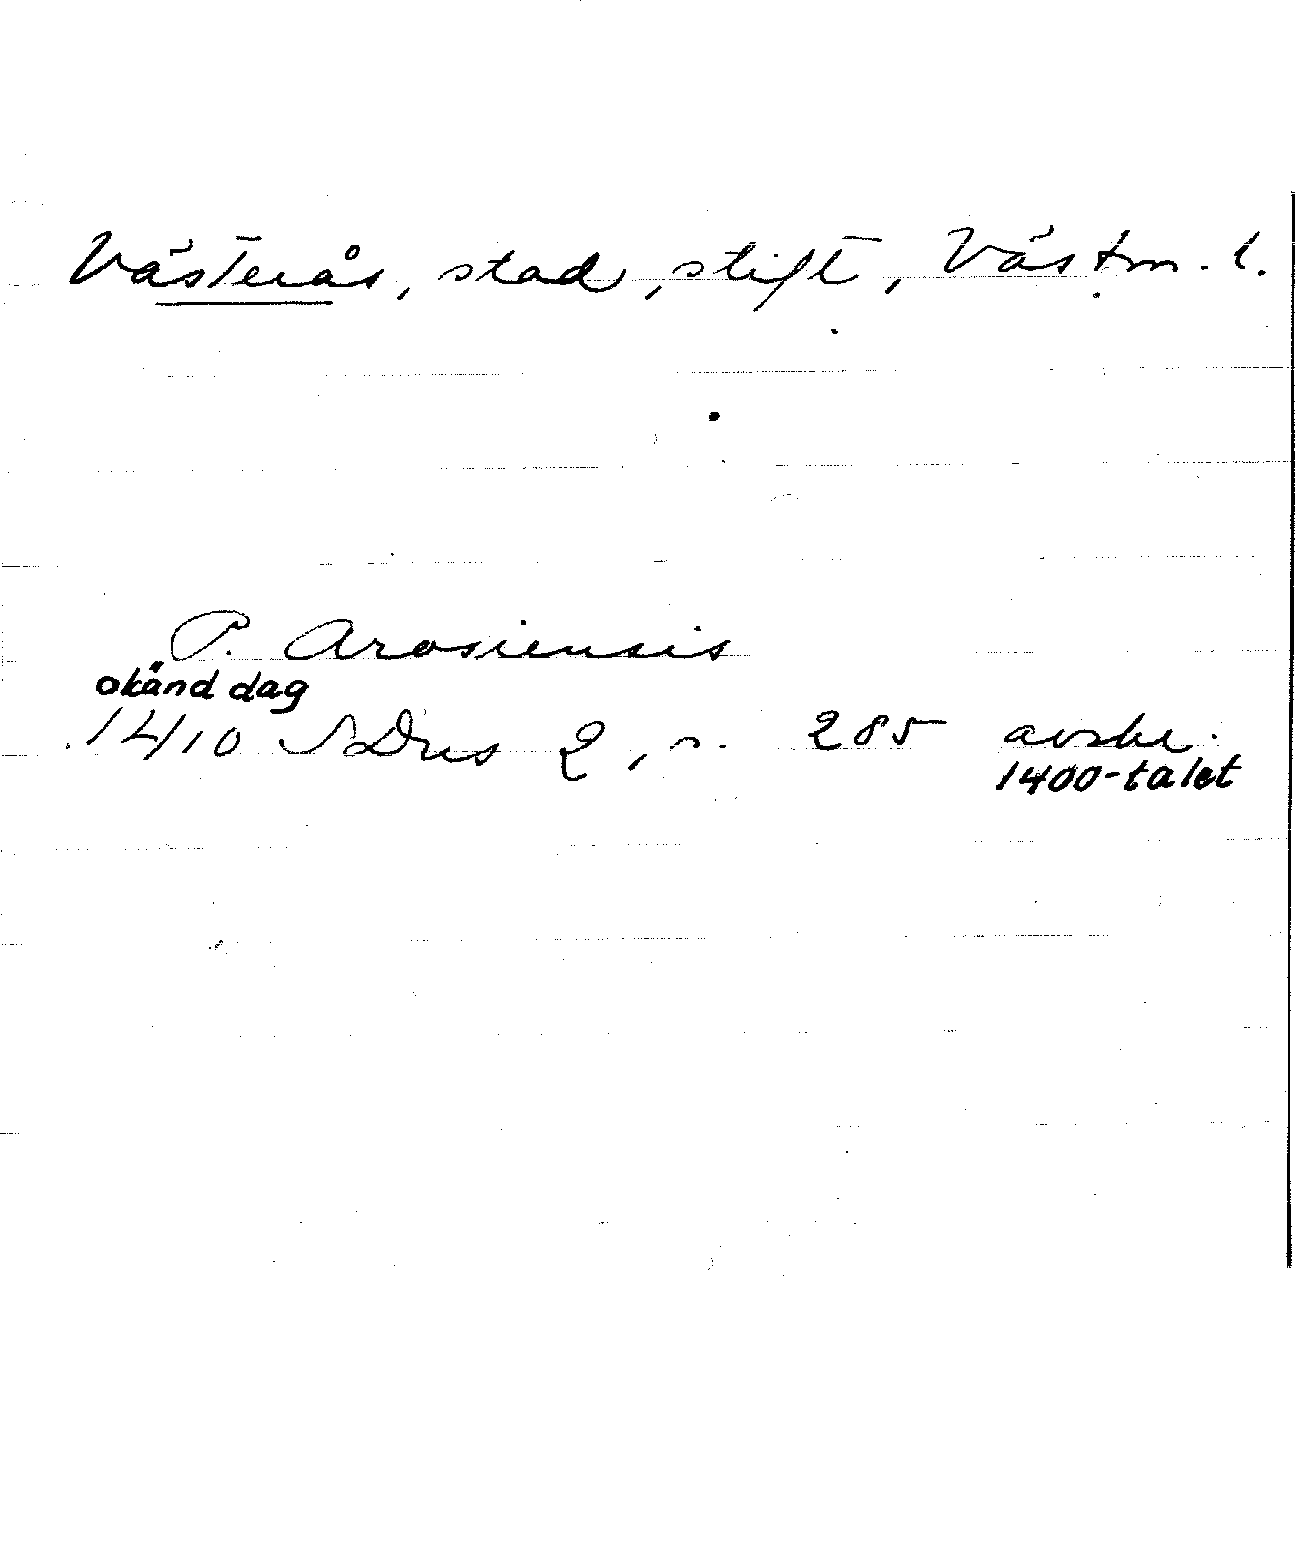 Västerås, stad, stift, Västm. l.
P. Arosiensis
okänd dag
1410 SDns 2, s. 285 avskr.
1400-talet